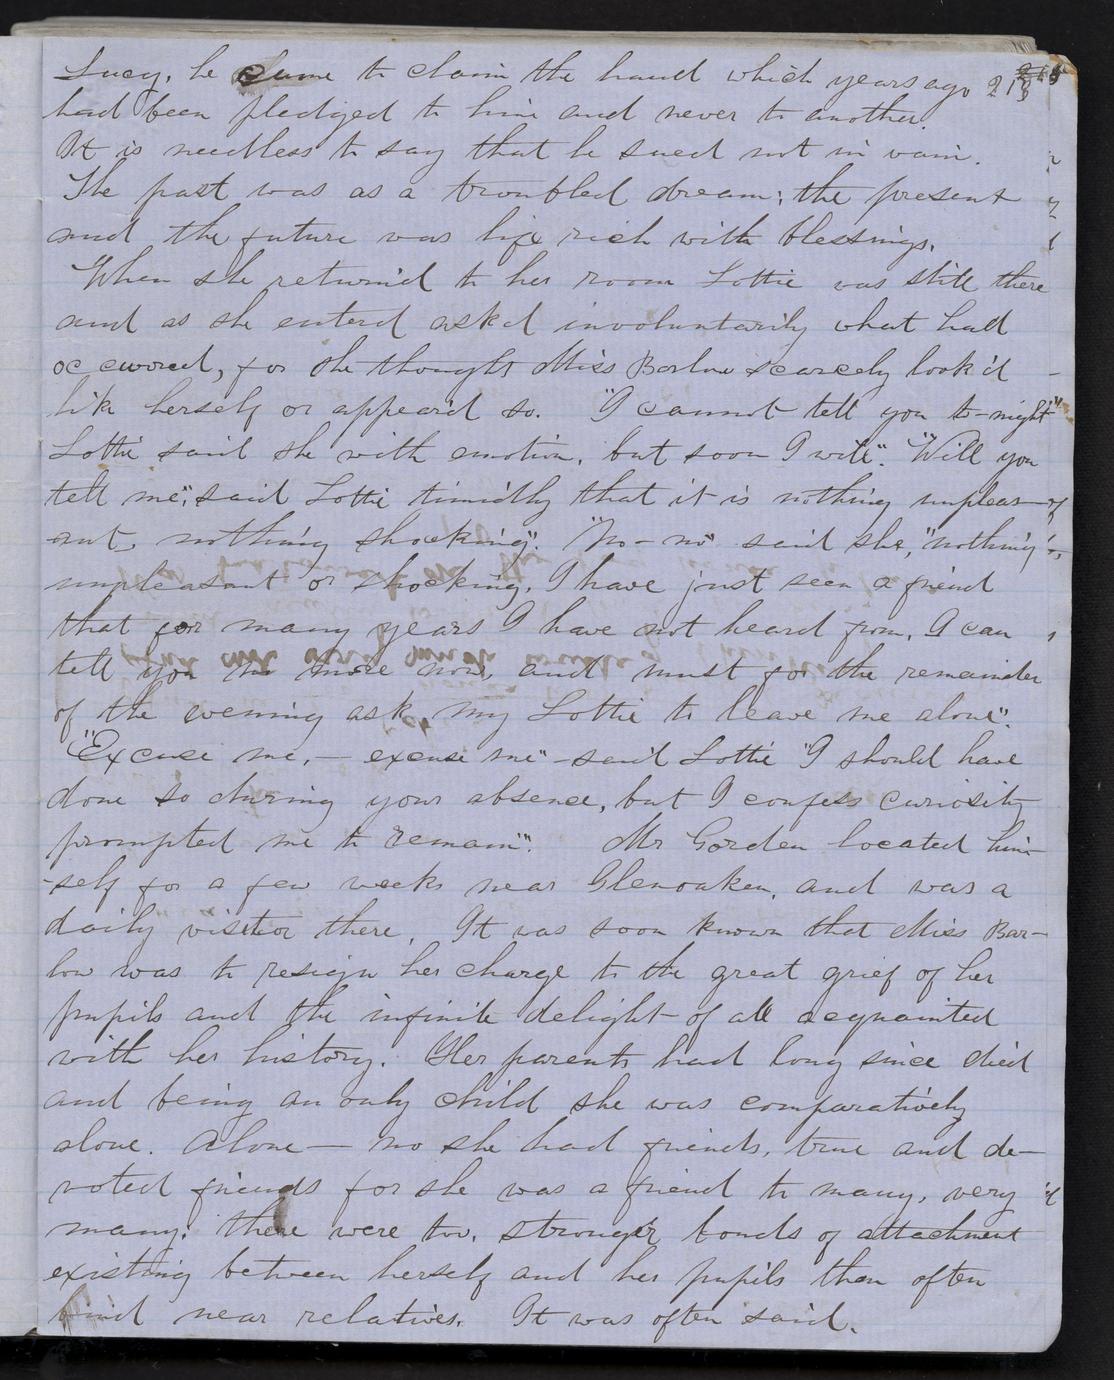 Lucy, he came to claim the hand which years ago 213
had been pledged to him and never to another.
It is needless to say that he sued not in vain.
The past was as a troubled dream; the present
and the future was life rich with blessings.
When she return'd to her room Lottie was still there
and as she enterd ask'd involuntarily what had
occurred, for she thought Miss Barlow scarcely look'd
like herself or appear'd so. "I cannot tell you to-night"
Lottie said she with emotion, but soon I will". "Will you
tell me", said Lottie timidly that it is nothing unpleas-
ant, nothing shocking". "No-no" said she, "nothing
unpleasant or shocking, I have just seen a friend
that for many years I have not heard from, I can
tell you no more now, and must for the remainder
of the evening ask my Lottie to leave me alone".
"Excuse me, — excuse me" - said Lottie "I should have
done so during your absence, but I confess curiosity
prompted me to remain". Mr Gorden located him-
-self for a few weeks near Glenoaken, and was a
daily visitor there. It was soon known that Miss Bar-
low was to resign her charge to the great grief of her
pupils and the infinite delight of all acquainted
with her history. Her parents had long since died
and being an only child she was comparatively
alone. Alone — no she had friends, true and de-
voted friends for she was a friend to many, very
many; there were too, stronger bonds of attachment
existing between herself and her pupils than often
bind near relatives. It was often said.